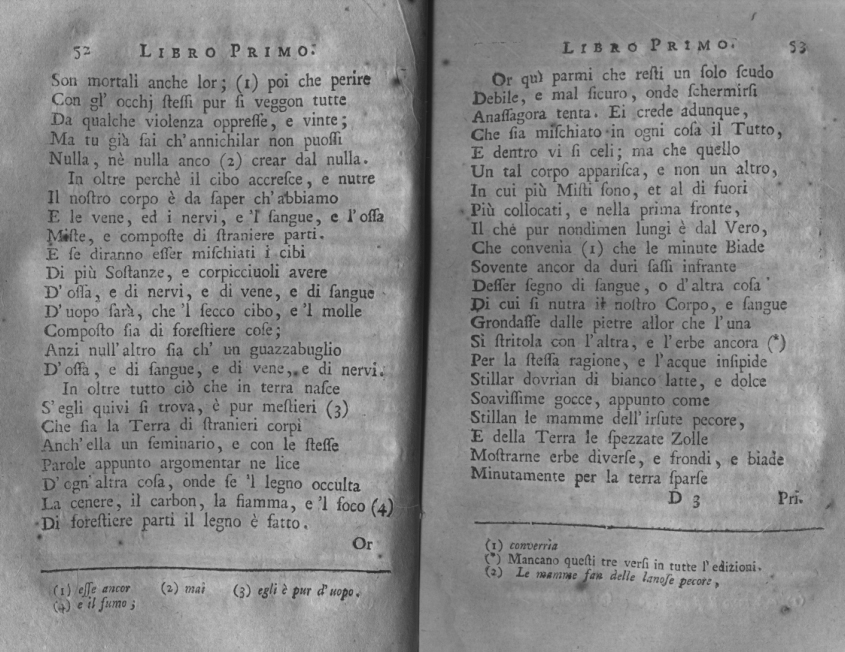 52 LIBRO PRIMO.
Son mortali anche lor; (1) poi che perire
Con gl' occhj ſteſſi pur ſi veggon tutte
Da qualche violenza oppreſſe, e vinte;
Ma tu già ſai ch'annichilar non puoſſi
Nulla, nè nulla anco (2) crear dal nulla.
In oltre perchè il cibo accreſce, e nutre
Il noſtro corpo è da ſaper ch'abbiamo
E le vene, ed i nervi, e 'l ſangue, e l'oſſa
Miſte, e compoſte di ſtraniere parti.
E ſe diranno eſſer miſchiati i cibi
Di più Soſtanze, e corpicciuoli avere
D' oſſa, e di nervi, e di vene, e di ſangue
D' uopo ſarà, che 'l ſecco cibo, e 'l molle
Compoſto ſia di foreſtiere coſe;
Anzi null' altro ſia ch' un guazzabuglio
D' oſſa, e di ſangue, e di vene, e di nervi.
In oltre tutto ciò che in terra naſce
S' egli quivi ſi trova, è pur meſtieri (3)
Che ſia la Terra di ſtranieri corpi
Anch' ella un ſeminario, e con le ſteſſe
Parole appunto argomentar ne lice
D' ogn' altra coſa, onde ſe 'l legno occulta
La cenere, il carbon, la fiamma, e 'l foco (4)
Di foreſtiere parti il legno è fatto.
Or
(1) eſſe ancor (2) mai (3) egli è pur d' uopo.
(4) e il fumo ;
LIBRO PRIMO. 53
Or quì parmi che reſti un ſolo ſcudo
Debile, e mal ſicuro, onde ſchermirſi
Anaſſagora tenta. Ei crede adunque,
Che ſia miſchiato in ogni coſa il Tutto,
E dentro vi ſi celi; ma che quello
Un tal corpo appariſca, e non un altro,
In cui più Miſti ſono, et al di fuori
Più collocati, e nella prima fronte,
Il che pur nondimen lungi è dal Vero,
Che convenia (1) che le minute Biade
Sovente ancor da duri ſaſſi infrante
Deſſer ſegno di ſangue, o d'altra coſa
Di cui ſi nutra il noſtro Corpo, e ſangue
Grondaſſe dalle pietre allor che l'una
Si ſtritola con l'altra, e l'erbe ancora (*)
Per la ſteſſa ragione, e l'acque inſipide
Stillar dovrian di bianco latte, e dolce
Soaviſſime gocce, appunto come
Stillan le mamme dell'irſute pecore,
E della Terra le ſpezzate Zolle
Moſtrarne erbe diverſe, e frondi, e biade
Minutamente per la terra ſparſe
D 3 Pri.
(1) converria
(*) Mancano queſti tre verſi in tutte l' edizioni.
(2) Le mamme fan delle lanoſe pecore,